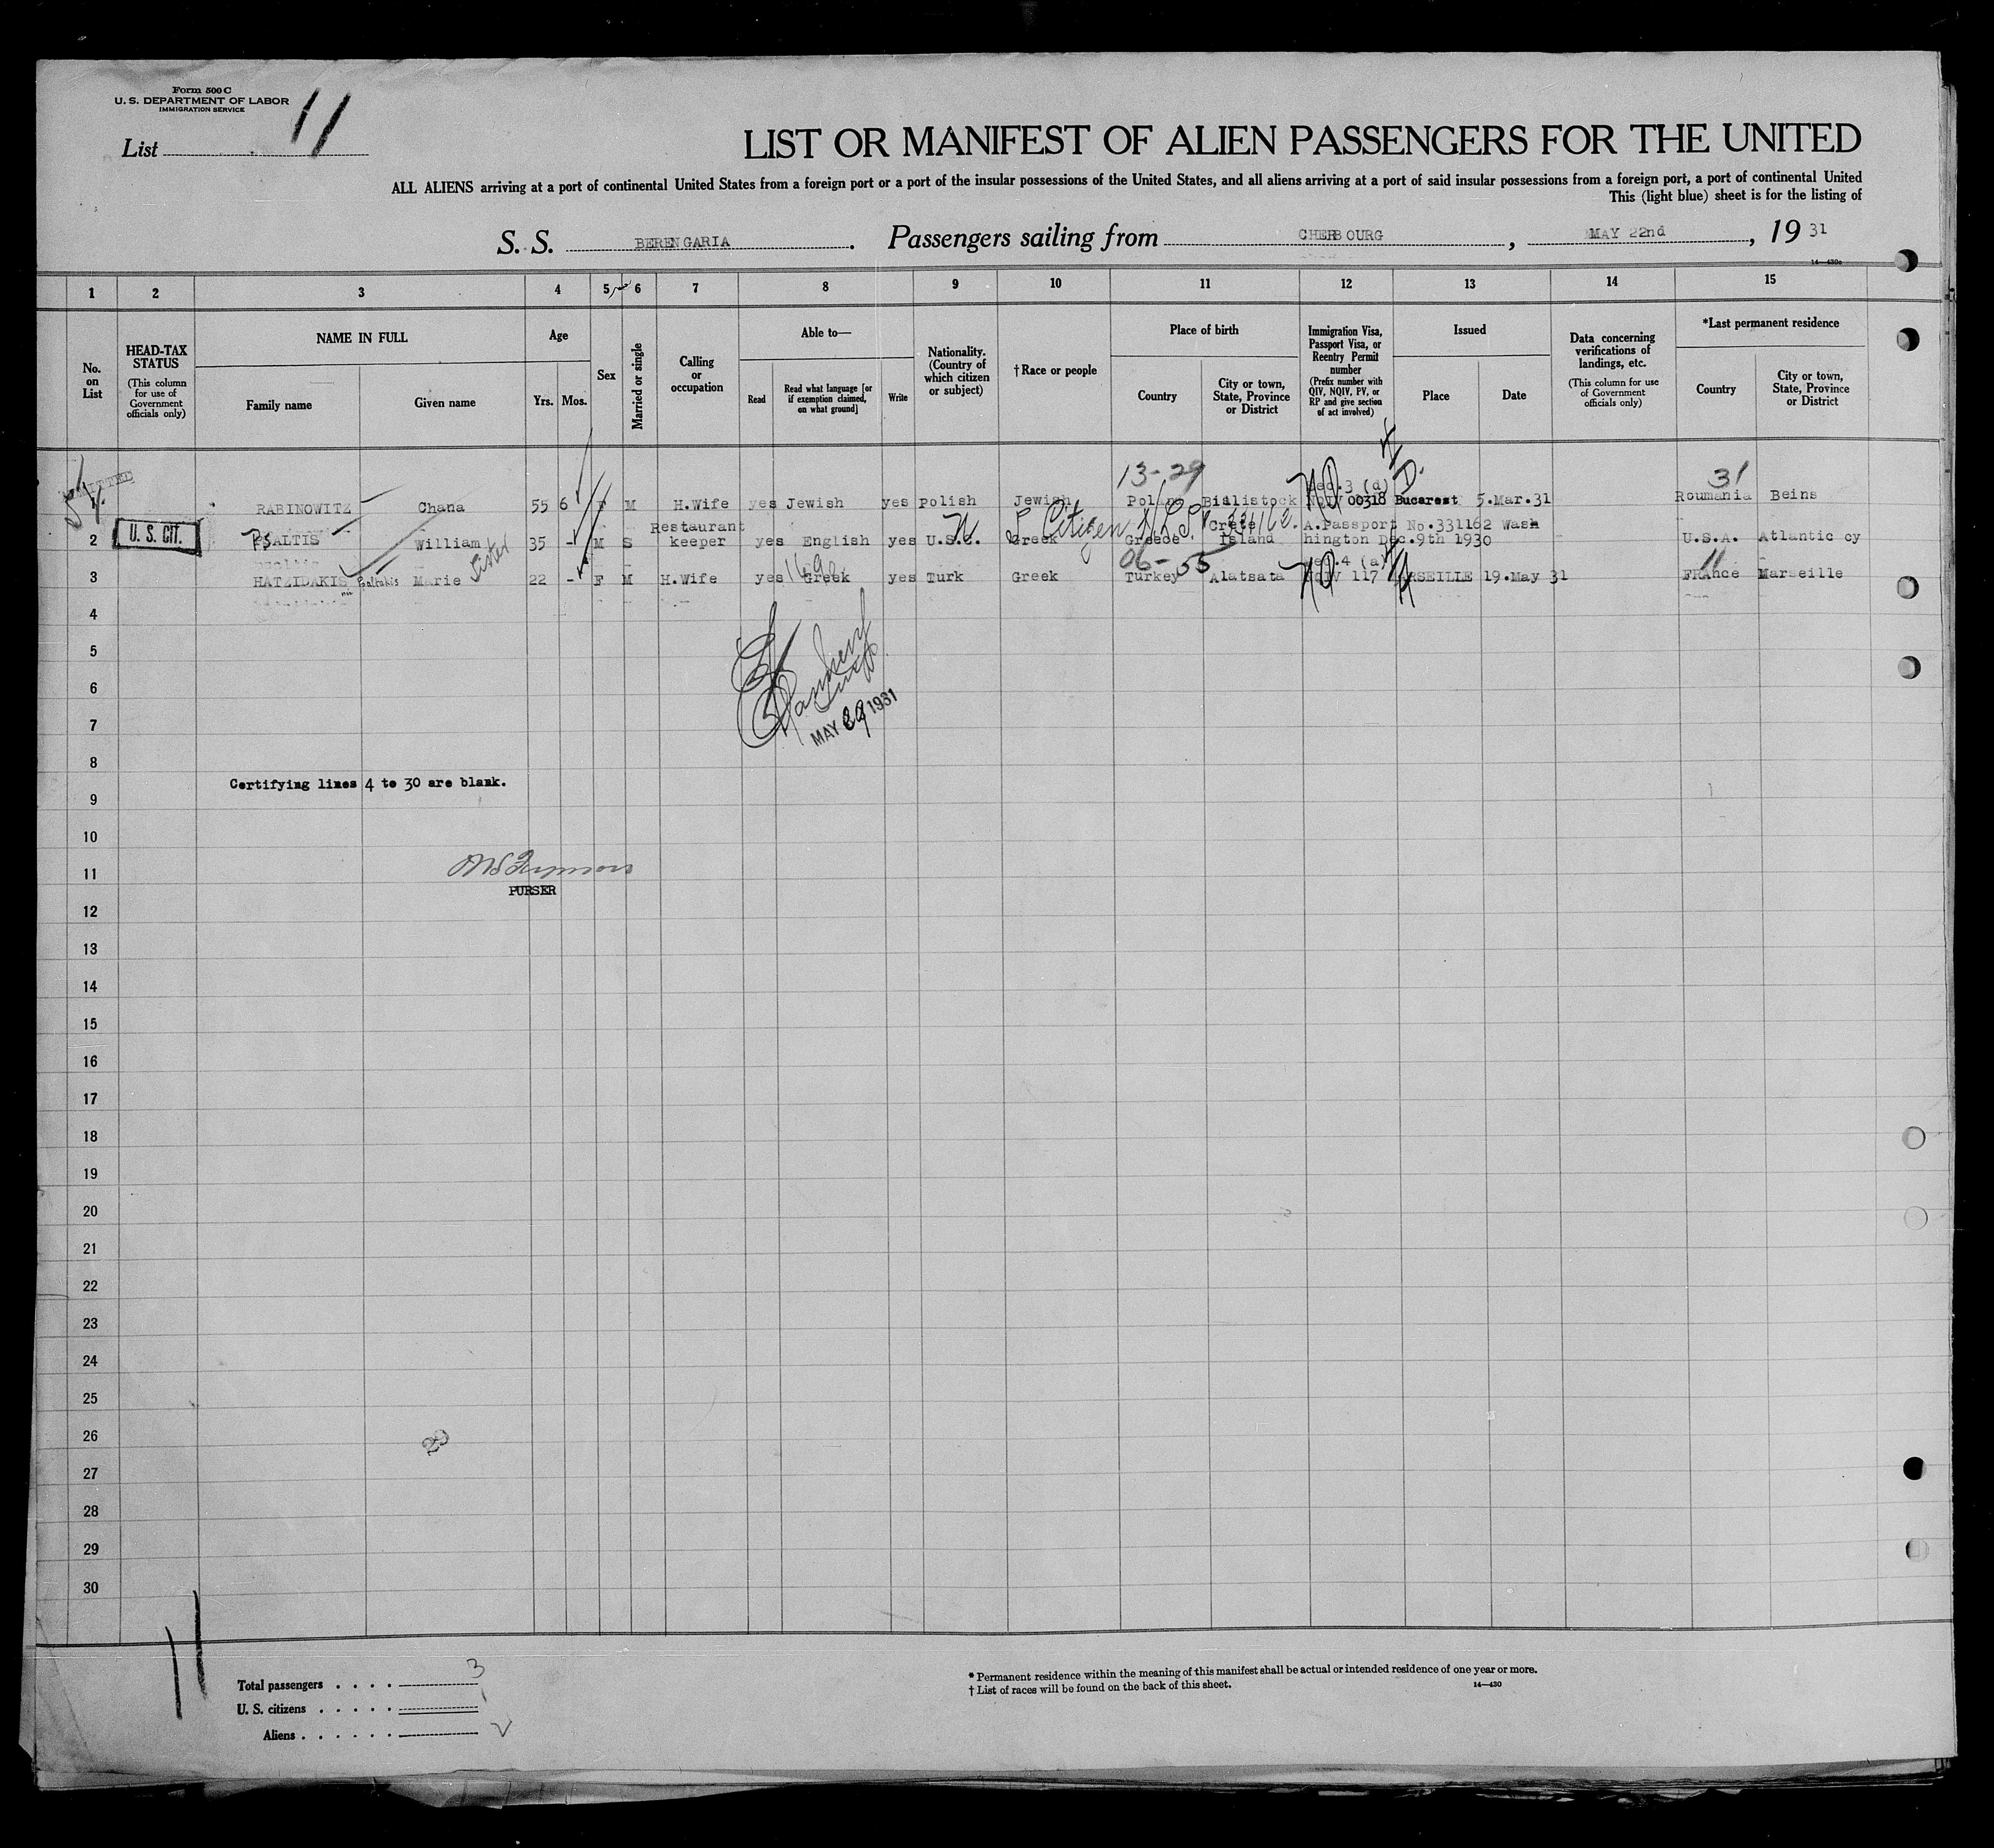 Form 500 C
U. S. DEPARTMENT OF LABOR
IMMIGRATION SERVICE
List 11
LIST OR MANIFEST OF ALIEN PASSENGERS FOR THE UNITED
ALL ALIENS arriving at a port of continental United States from a foreign port or a port of the insular possessions of the United States, and all aliens arriving at a port of said insular possessions from a foreign port, a port of continental United
This (light blue) sheet is for the listing of
S. S. BERENGARIA. Passengers sailing from CHERBOURG, MAY 22nd, 19 31
14—430c
1 2 3 4 5 6 7 8 9 10 11 12 13 14 15
No. on List
HEAD-TAX STATUS
(This column for use of Government officials only)
NAME IN FULL
Family name
Given name
Age
Yrs. Mos.
Sex
Married or single
Calling or occupation
Able to—
Read
Read what language [or if exemption claimed, on what ground]
Write
Nationality. (Country of which citizen or subject)
† Race or people
Place of birth
Country
City or town, State, Province or District
Immigration Visa, Passport Visa, or Reentry Permit number
(Prefix number with QIV, NQIV, PV, or RP and give section of act involved)
Issued
Place
Date
Data concerning verifications of landings, etc.
(This column for use of Government officials only)
*Last permanent residence
Country
City or town, State, Province or District
13-29 31
RABINOWITZ Chana 55 6 F M H.Wife yes Jewish yes Polish Jewish Poland Bialistock NQIV 00318 Bucarest 5.Mar.31 Roumania Beins
U. S. CIT.
Restaurant Crete A.Passport No.331162 Wash
2 PSALTIS William 35 - M S keeper yes English yes U.S.C. Greek Greece Island hington Dec.9th 1930 U.S.A. Atlantic cy
Sister
06-55 11
3 HATZIDAKIS Marie 22 - F M H.Wife yes Greek yes Turk Greek Turkey Alatsata NQIV 117 MARSEILLE 19.May 31 FRance Marseille
4
5
6
7
MAY 29 1931
8
Certifying lines 4 to 30 are blank.
9
10
11
PURSER
12
13
14
15
16
17
18
19
20
21
22
23
24
25
26
27
28
29
30
11
Total passengers . . . . 3
U. S. citizens . . . . . 1
Aliens . . . . . . 2
* Permanent residence within the meaning of this manifest shall be actual or intended residence of one year or more.
† List of races will be found on the back of this sheet.
14—430